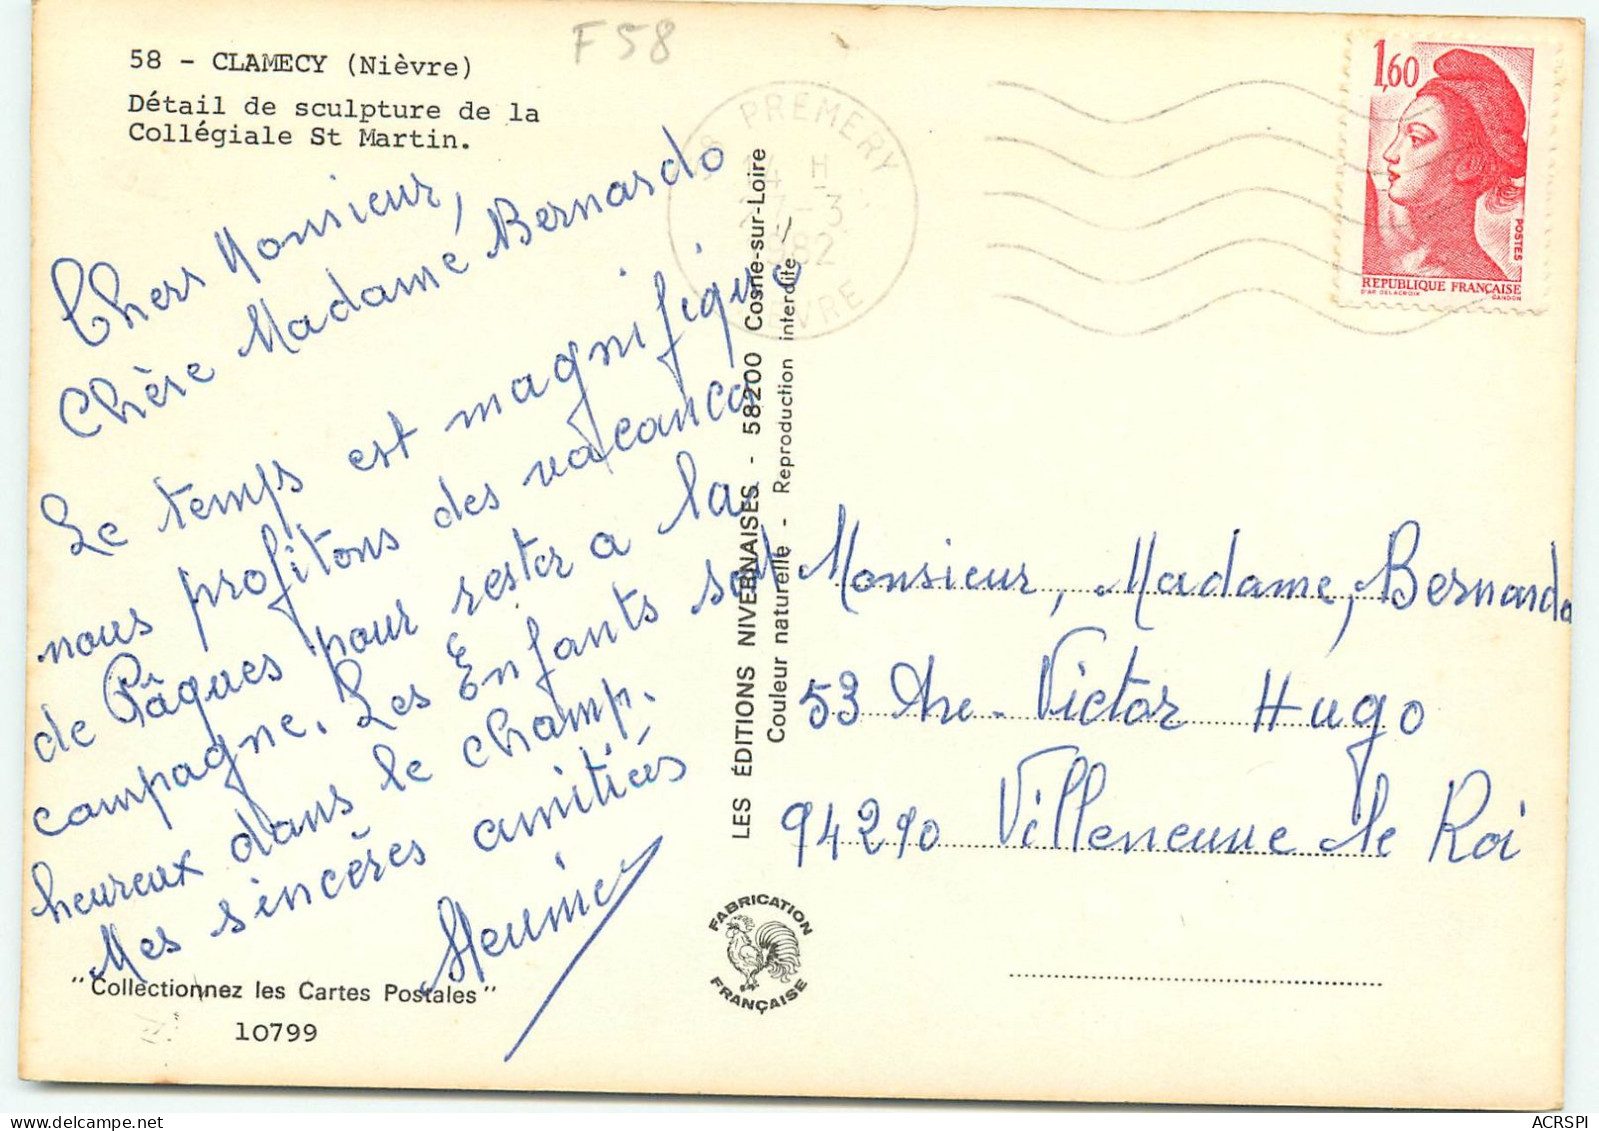 F 58
58 - CLAMECY (Nièvre)
Détail de sculpture de la
Collégiale St Martin.
Chers Monsieur,
Chère Madame Bernardo
Le temps est magnifique
nous profitons des vacances
de Pâques pour rester a la
campagne. Les Enfants sont
heureux dans le champ.
Mes sincères amitiés
"Collectionnez les Cartes Postales"
10799
LES ÉDITIONS NIVERNAISES - 58200 Cosne-sur-Loire
Couleur naturelle - Reproduction interdite
FABRICATION
FRANÇAISE
58 PREMERY
14 H
27-3
1982
NIEVRE
1,60
POSTES
REPUBLIQUE FRANÇAISE
D'AP. DELACROIX GANDON
Monsieur, Madame, Bernardo
53 Ave. Victor Hugo
94290 Villeneuve le Roi
www.delcampe.net
ACRSPI